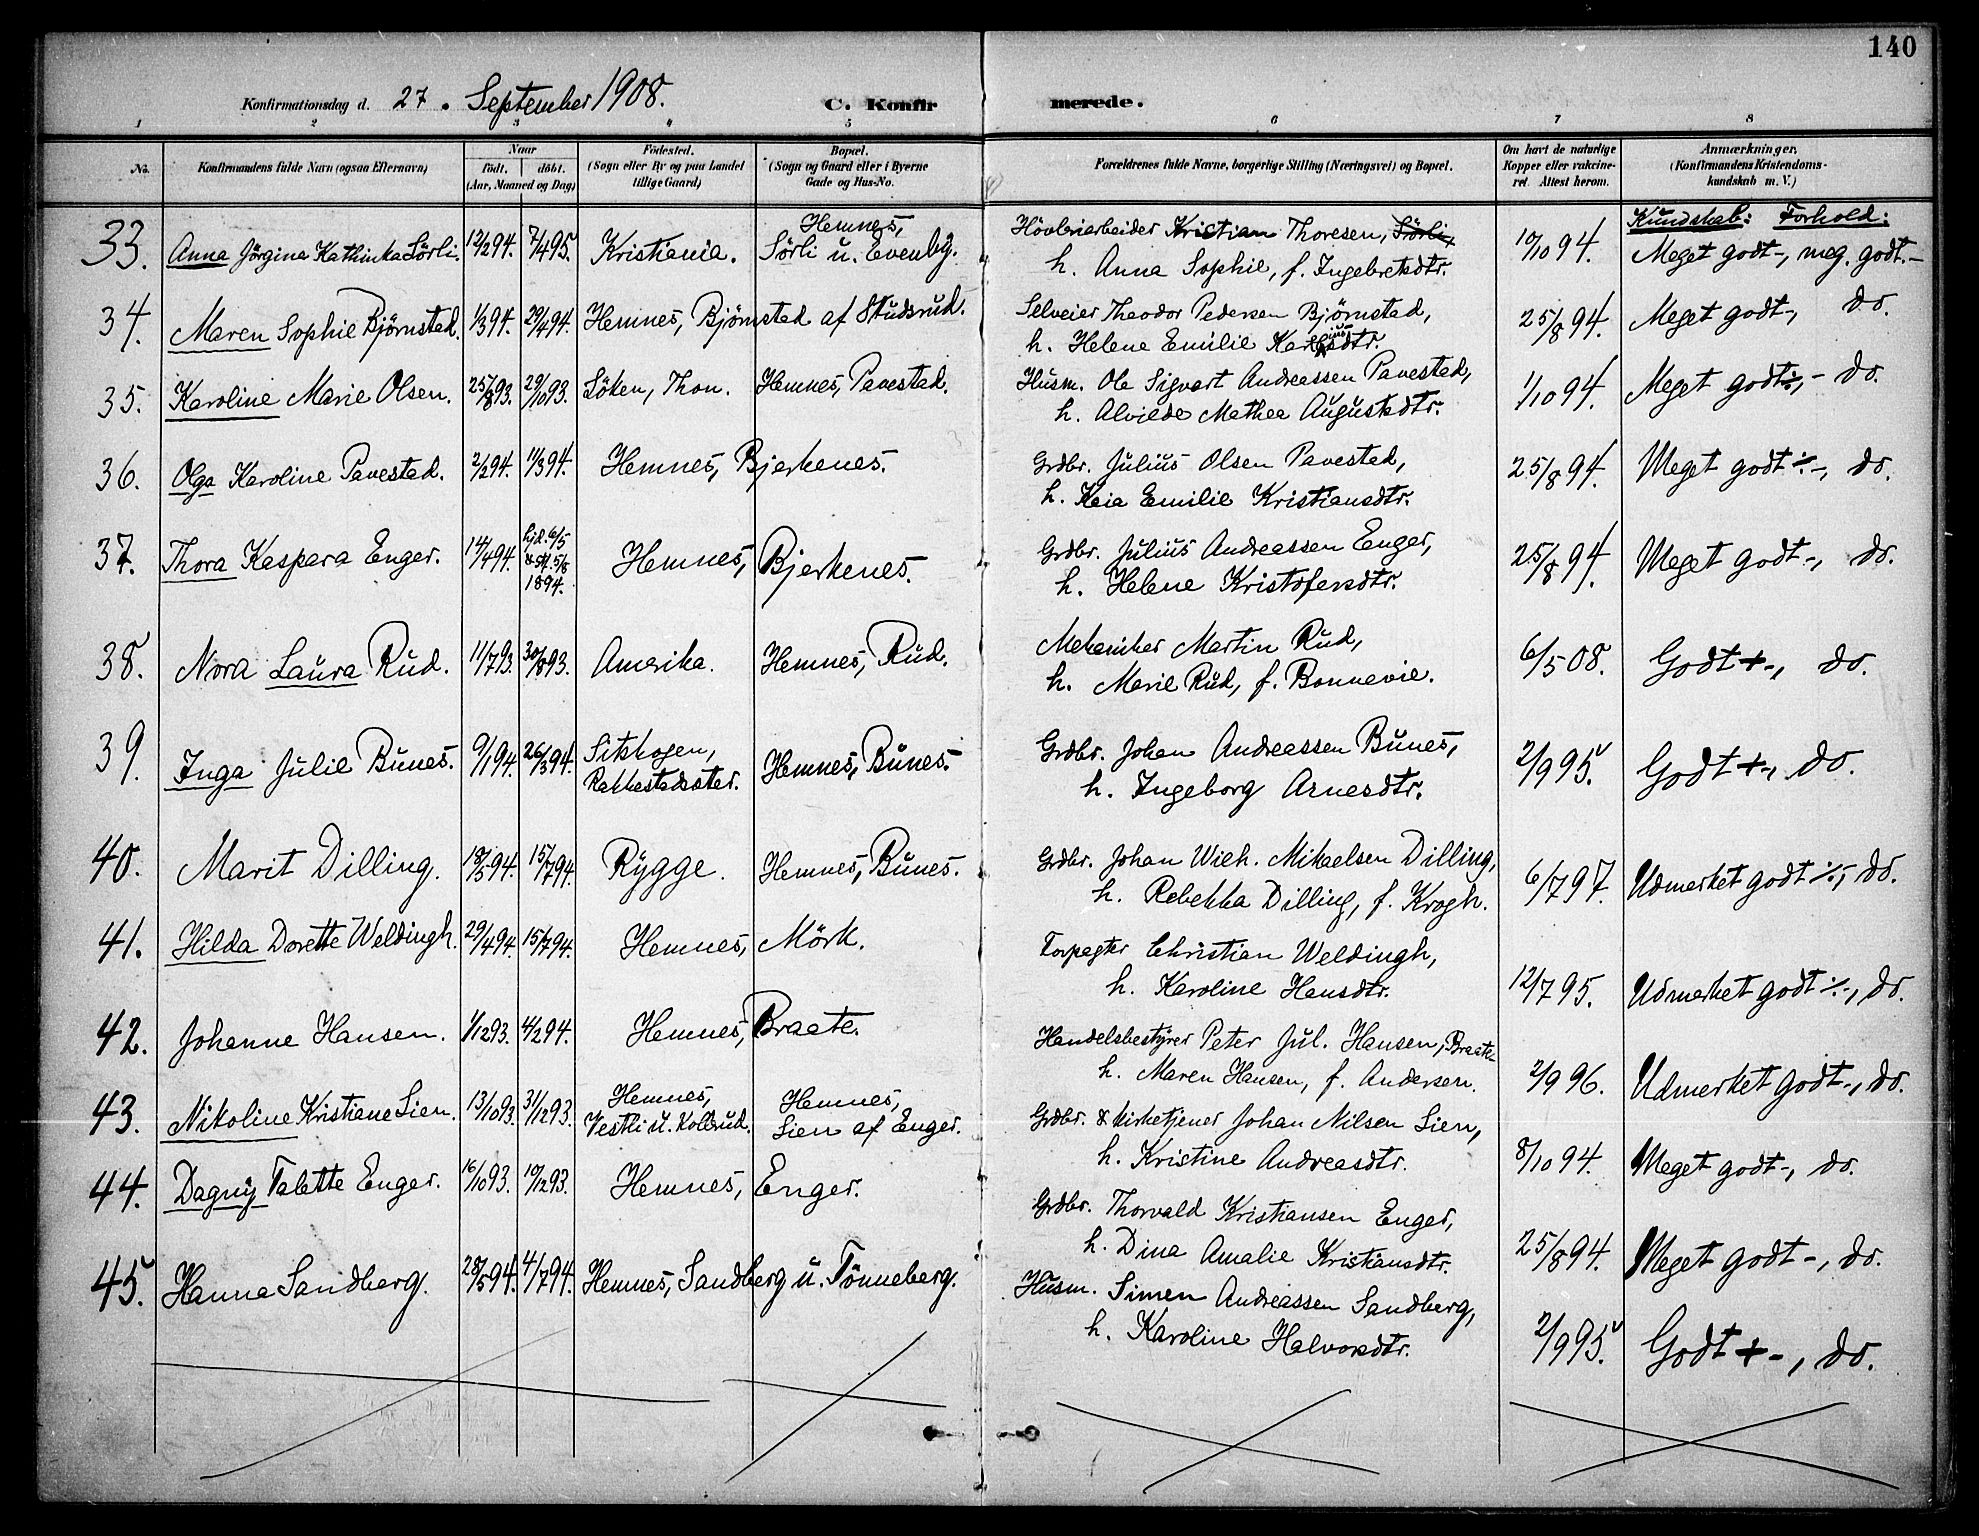 140
Konfirmationsdag d. 27. September 1908. C. Konfirmerede.
1 2 3 4 5 6 7 8
No. Konfirmandens fulde Navn (ogsaa Efternavn) Naar født. døbt. (Aar, Maaned og Dag) Fødested. (Sogn eller By og paa Landet tillige Gaard) Bopæl. (Sogn og Gaard eller i Byerne Gade og Hus-No. Forældrenes fulde Navne, borgerlige Stilling (Næringsvei) og Bopæl. Om havt de naturlige Kopper eller vakcineret. Attest herom. Anmærkninger. (Konfirmandens Kristendomskundskab m. V.)
Kundskab: Forhold:
33. Anna Jörgine Kathinka Sörli. 12/2 94. 7/4 95. Kristiania. Hemnes, Sörli u. Evenby. Hövleriarbeider Kristian Thoresen, Sörli, 19/10 94. Meget godt-, meg. godt.-
h. Anna Sophie, f. Ingebretsdtr.
34. Maren Sophie Björnstad. 1/3 94. 29/4 94. Hemnes, Bjørnstad af Studsrud. Selveier Theodor Pedersen Bjørnstad, 25/8 94. Meget godt-, do.
h. Helene Emilie Karliusdtr.
35. Karoline Marie Olsen. 25/8 93. 29/10 93. Söken, Thon. Hemnes, Pavestad. Husm. Ole Sigvart Andreassen Pavestad, 1/10 94. Meget godt÷,- do.
h. Alvilde Mathea Augustsdtr.
36. Olga Karoline Pavestad. 2/2 94. 11/3 94. Hemnes, Bjerkenes. Grdbr. Julius Olsen Pavestad, 25/8 94. Meget godt ÷-, do.
h. Kaia Emilie Kristiansdtr.
37. Thora Kaspara Enger. 14/4 94. hjd. 6/5 1894. Hemnes, Bjerkenes. Grdbr. Julius Andreassen Enger, 25/8 94. Meget godt-, do.
h. Helene Kristofersdtr.
38. Nora Laura Rud. 11/7 93. 30/8 93. Amerika. Hemnes, Rud. Mekaniker Martin Rud, 6/5 08. Godt +-, do.
h. Marie Rud, f. Bonnevie.
39. Inga Julie Bunes. 9/1 94. 26/3 94. Sitskogen, Rakkestadsæter. Hemnes, Bunes. Grdbr. Johan Andreassen Bunes, 2/9 95. Godt +-, do.
h. Ingeborg Arnesdtr.
40. Marit Dilling. 18/5 94. 15/7 94. Rygge. Hemnes, Bunes. Grdbr. Johan Wilh. Mikaelsen Dilling, 6/7 97. Udmerket godt ÷-, do.
h. Rebekka Dilling, f. Krogh.
41. Hilda Dorette Weldingh. 29/4 94. 15/7 94. Hemnes, Mörk. Forpagter Christian Weldingh, 12/7 95. Udmerket godt ÷-, do.
h. Karoline Hansdtr.
42. Johanne Hansen. 1/12 93. 4/2 94. Hemnes, Braate. Handelsbestyrer Peter Jul. Hansen, Braate 2/9 96. Udmerket godt-, do.
h. Maren Hansen, f. Andersen.
43. Nikoline Kristiane Lien. 13/10 93. 31/12 93. Hemnes, Vestli u. Kollerud. Hemnes, Lien af Enger. Grdbr. & kirketjener Johan Nilsen Lien, 8/10 94. Meget godt-, do.
h. Kristine Andreasdtr.
44. Dagny Talette Enger. 16/10 93. 10/12 93. Hemnes, Enger. Grdbr. Thorvald Kristiansen Enger, 25/8 94. Meget godt-, do.
h. Dina Amalie Kristiansdtr.
45. Hanna Sandberg. 28/5 94. 4/7 94. Hemnes, Sandberg u. Tönneberg. Husm. Simen Andreassen Sandberg, 2/9 95. Godt +-, do.
h. Karoline Halvorsdtr.